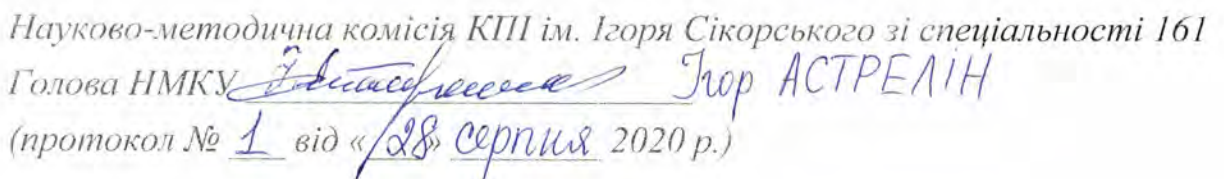 Науково-методична комісія КПІ ім. Ігоря Сікорського зі спеціальності 161
Голова НМКУ Ігор АСТРЕЛІН
(протокол № 1 від «28» серпня 2020 р.)